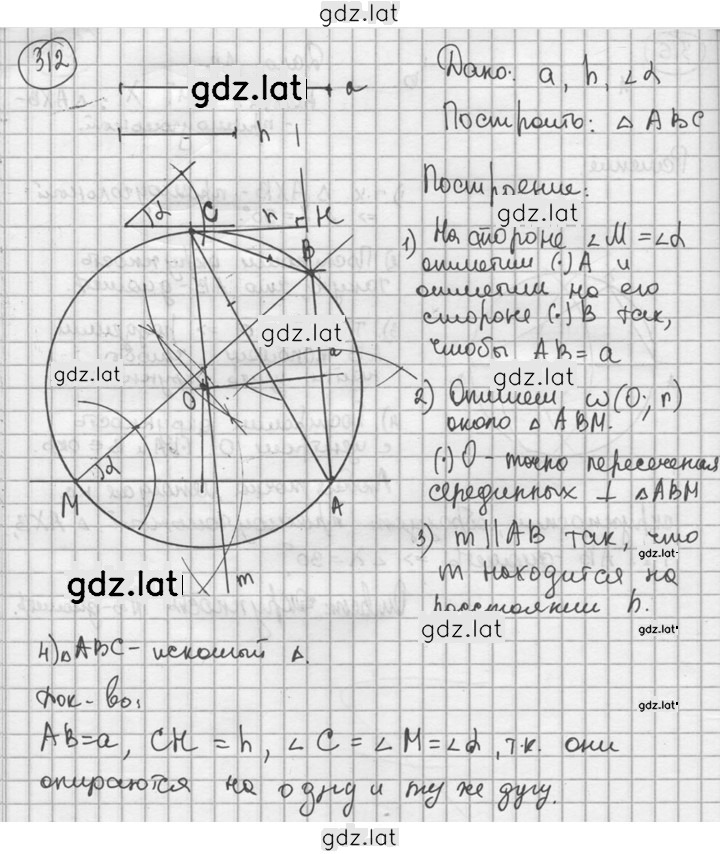 gdz.lat
312
gdz.lat
a
h
Дано: a, h, ∠α
Построить: △ ABC
Построение:
gdz.lat
1) На стороне ∠M = ∠α
отметим (·) A и
отметим на его
стороне (·) B так,
чтобы AB = a
2) Опишем ω(O; r)
около △ ABM.
(·) O - точка пересечения
серединных ⊥ △ABM
3) m || AB так, что
gdz.lat
m находится на
расстоянии h.
gdz.lat
α
C
h
H
B
gdz.lat
gdz.lat
a
O
α
M
A
gdz.lat
m
4) △ABC - искомый △.
gdz.lat
Док-во:
gdz.lat
AB = a, CH = h, ∠C = ∠M = ∠α, т.к. они
опираются на одну и ту же дугу.
gdz.lat